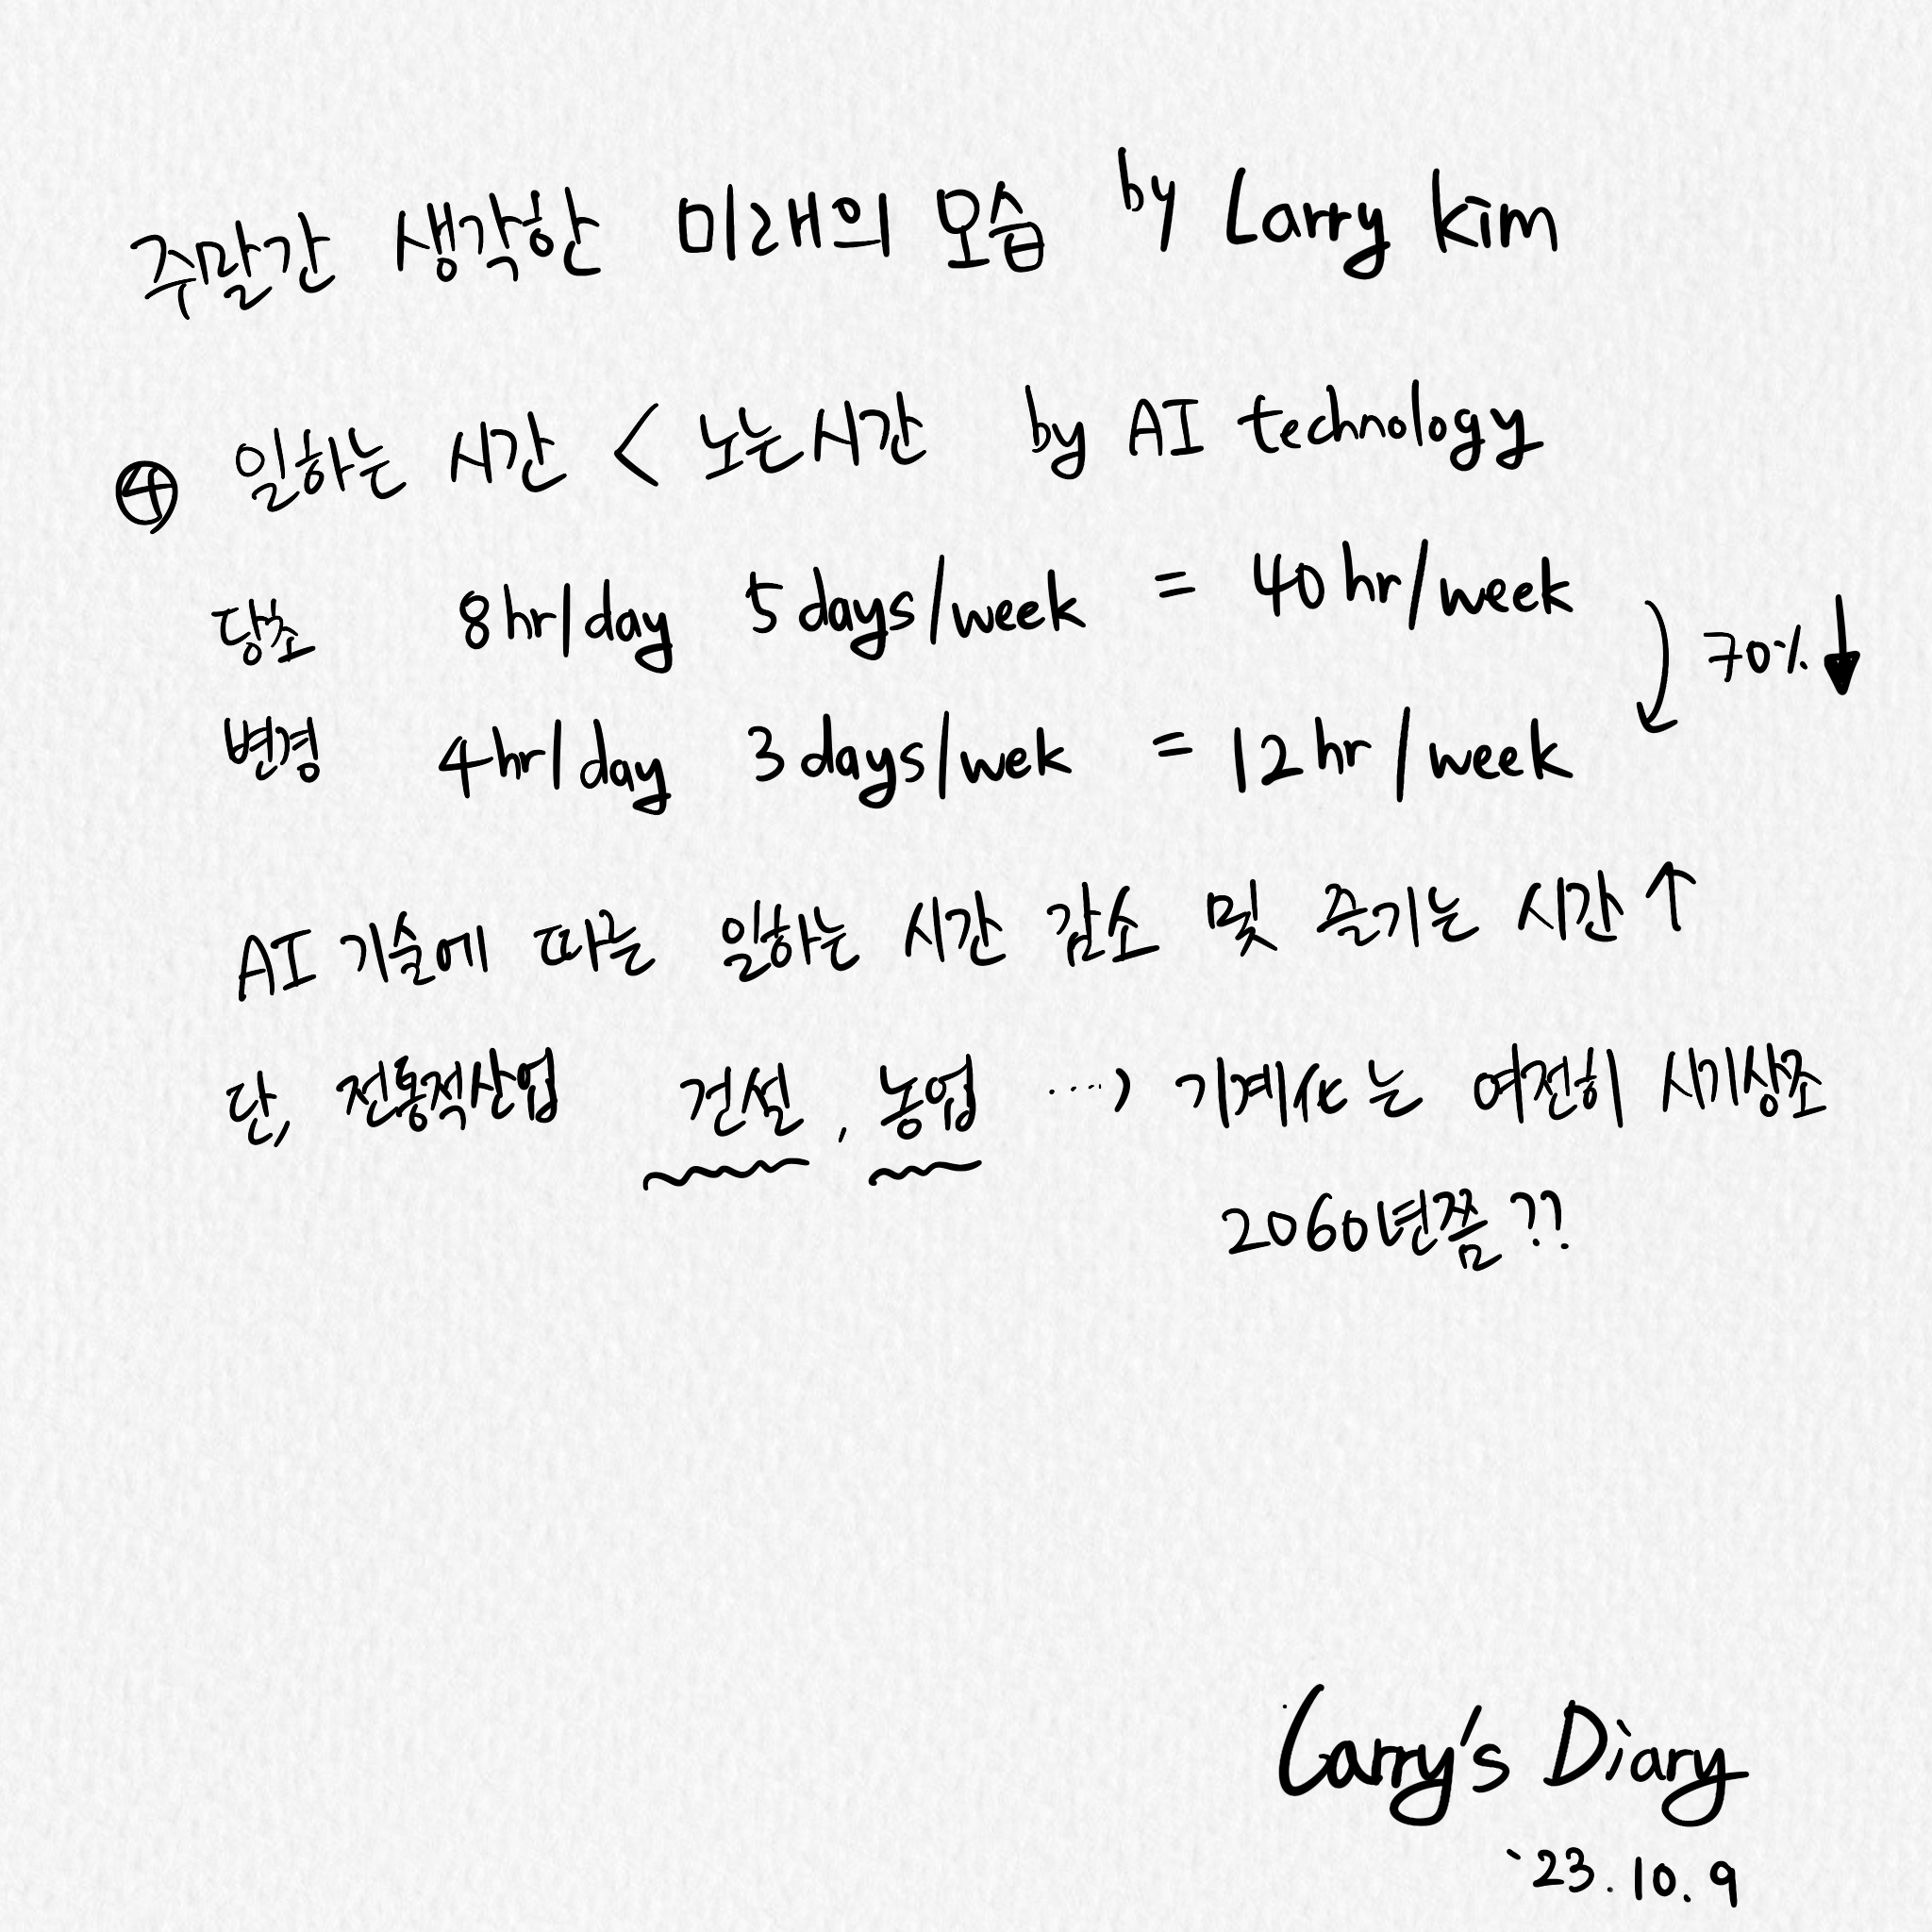 주말간 생각한 미래의 모습 by Larry kim
④ 일하는 시간 < 노는시간 by AI technology
당초 8hr/day 5days/week = 40hr/week 70% ↓
변경 4hr/day 3days/wek = 12hr/week
AI 기술에 따른 일하는 시간 감소 및 즐기는 시간 ↑
단, 전통적산업 건설, 농업 ...) 기계化는 여전히 시기상조
2060년쯤??
Larry's Diary
`23.10.9